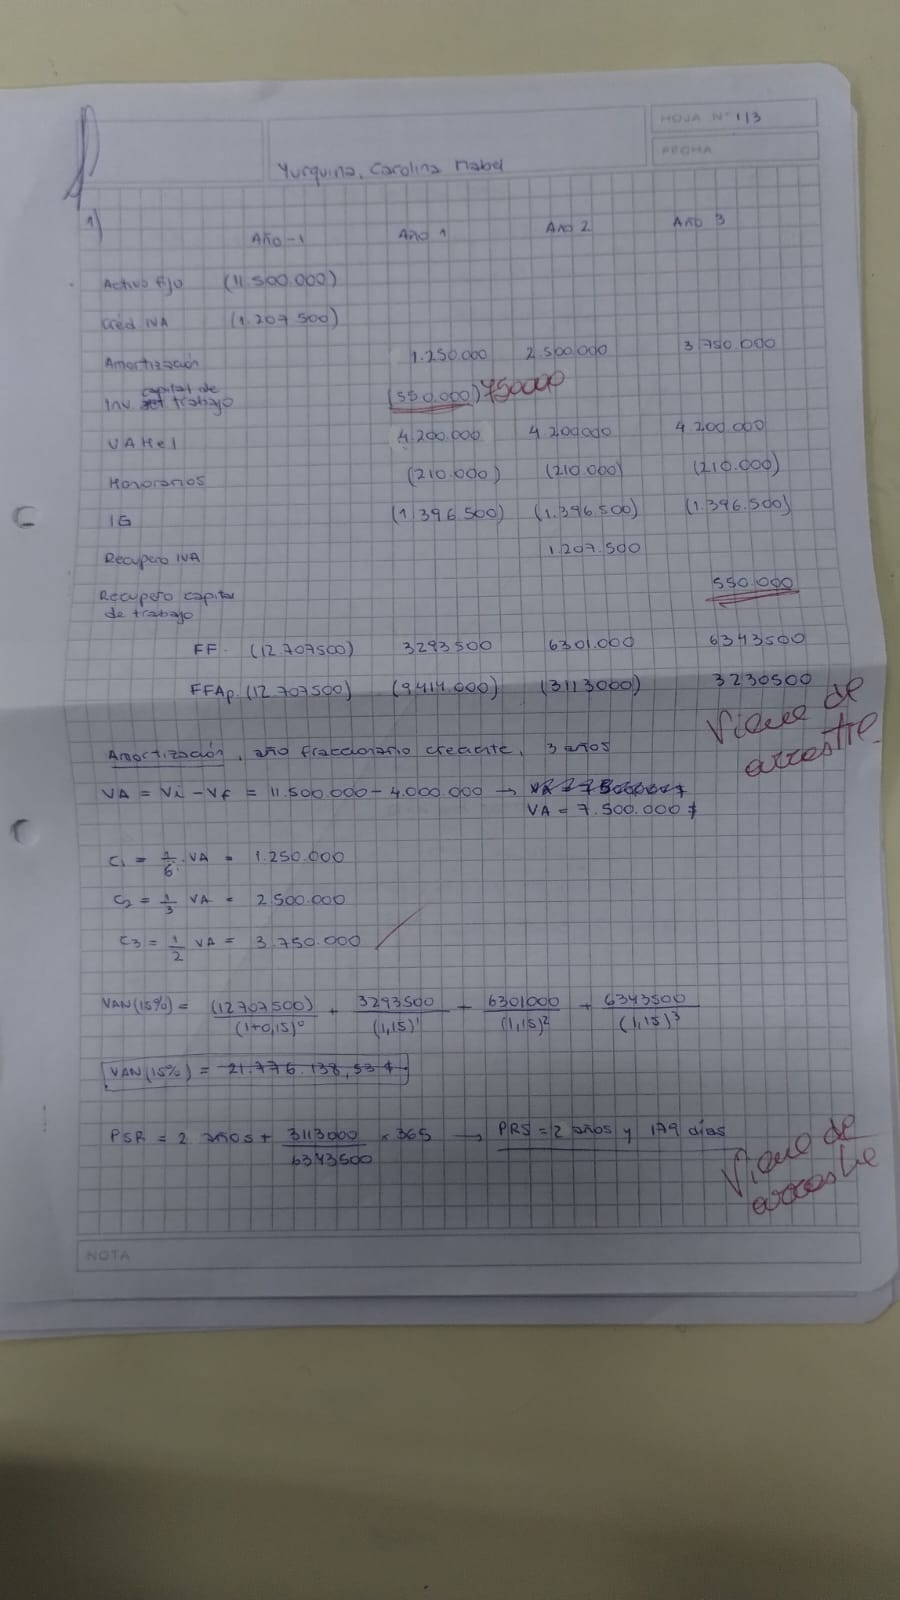 HOJA N° 1/3
FECHA
Yurquina, Carolina Mabel
1)
Año-1 Año 1 Año 2 Año 3
Activo fijo (11.500.000)
Créd IVA (1.207.500)
Amortización 1.250.000 2.500.000 3.750.000
capital de
Inv. trabajo (550.000) 750000
UAHeI 4.200.000 4.200.000 4.200.000
Honorarios (210.000) (210.000) (210.000)
IG (1.396.500) (1.396.500) (1.396.500)
Recupero IVA 1.207.500
Recupero capital 550.000
de trabajo
FF. (12.707500) 3293500 6301.000 6343500
FFAp. (12.707500) (9414.000) (3113000) 3230500
Viene de
arrastre
Amortización, año fraccionario creciente, 3 años
VA = Vi - Vf = 11.500.000 - 4.000.000 →
VA = 7.500.000 $
C1 = 1/6 . VA = 1.250.000
C2 = 1/3 VA = 2.500.000
C3 = 1/2 VA = 3.750.000
VAN(15%) = (12707500)/(1+0,15)^0 + 3293500/(1,15)^1 + 6301000/(1,15)^2 + 6343500/(1,15)^3
VAN(15%) = 21.776.138,53 $
PSR = 2 años + 3113000/6343500 x 365 → PRS = 2 años y 179 días
Viene de
arrastre
NOTA